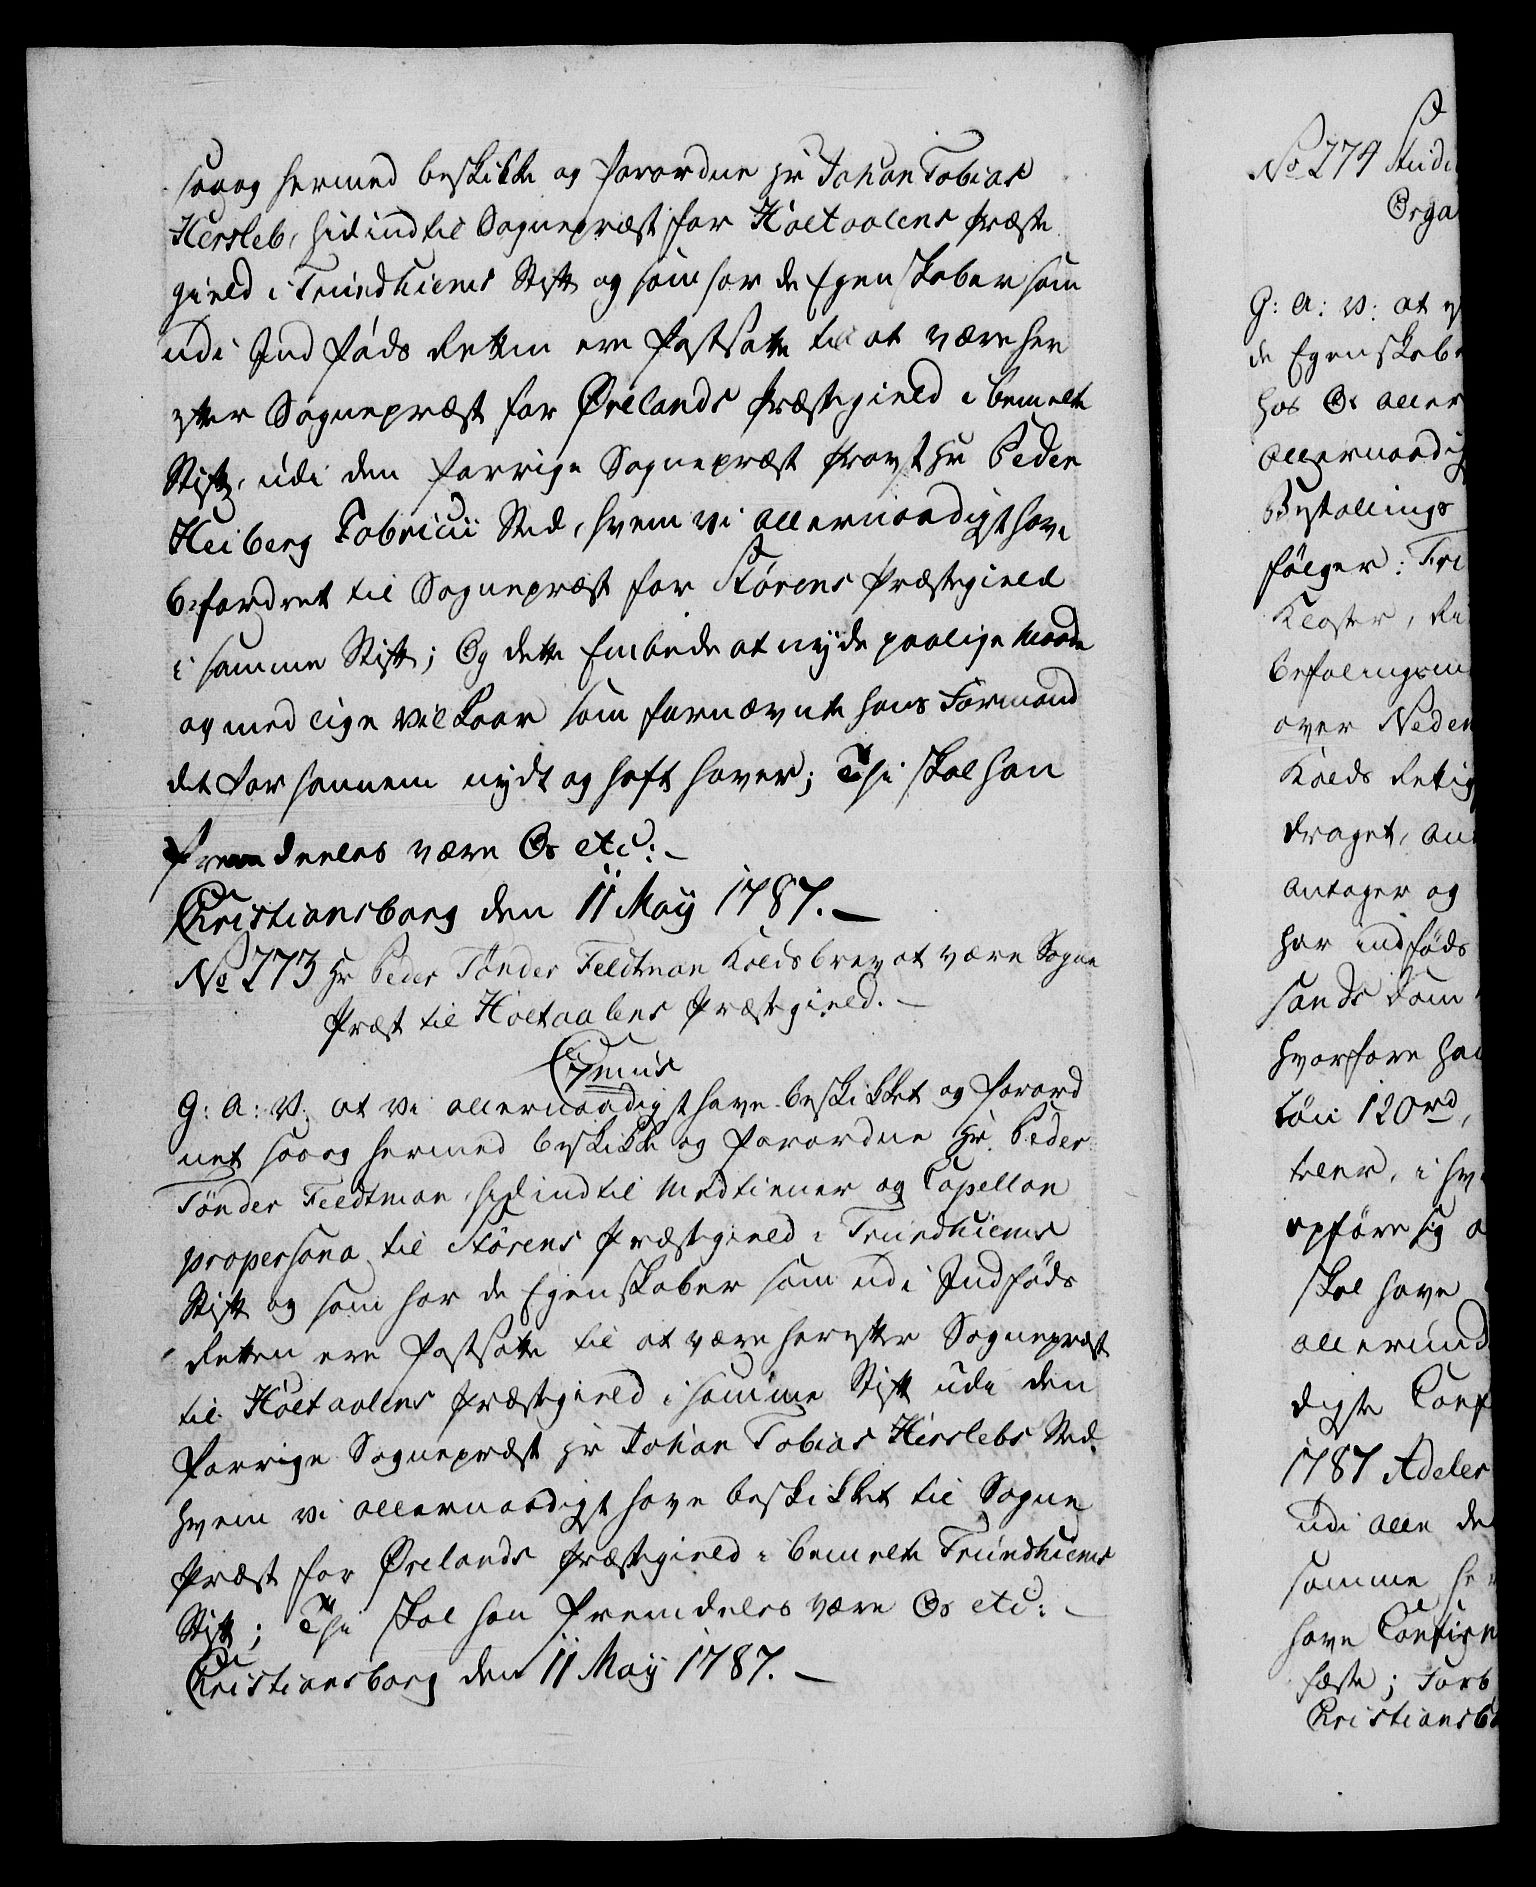 saa og hermed beskikke og forordne Hr Johan Tobias
Hersleb, hidindtil Sognepræst for Holtaalens Præste
gield i Trundhiems Stift og som har de Egenskaber som
udi Indføds Retten ere fastsatte til at være her
efter Sognepræst for Ørelands Præstegield i bemelte
Stift, udi den forrige Sognepræst Provst Hr Peder
Heiberg Fabricii Sted, hvem vi allernaadigst have
befordret til Sognepræst for Størens Præstegield
i samme Stift; Og dette Embede at nyde paa lige Maade
og med lige Vilkaar som fornævnte hans Formand
det for hannem nydt og haft haver; Thi skal han
fremdeeles være Os etc:
Christiansborg den 11 May 1787.
No 273 Hr Peder Tønder Feldtman Kaldsbrev at være Sogne
Præst til Holtaalens Præstegield.
Gemis
G: A: V: at vi allernaadigst have beskikket og forord
net saa og hermed beskikke og forordne Hr. Peder
Tønder Feldtman hidindtil Medtiener og Capellan
propersona til Størens Præstegield i Trundhiems
Stift og som har de Egenskaber som udi Indføds
Retten ere fastsatte til at være herefter Sognepræst
til Holtaalens Præstegield i samme Stift udi den
forrige Sognepræst Hr Johan Tobias Herslebs Sted
hvem vi allernaadigst have beskikket til Sogne
Præst for Ørelands Præstegield i bemelte Trundhiems
Stift; Thi skal han fremdeles være Os etc:
Christiansborg den 11 May 1787.
No 274 Stude
Orga
G: A: V: at v
de Egenskabe
hos Os aller
allernaadig
Bestallings
følger: Fri
Kloster, Ri
Befalingsm
over Neden
Kalds Rettig
draget, an
antager og
har indføds
sands Dom
hvorfore ha
Løn 120 rd,
opføre sig
skal have
allerund
digste Conf
1787 Adeler
udi alle de
samme her
have Confirm
fæste; Forb
Christiansb